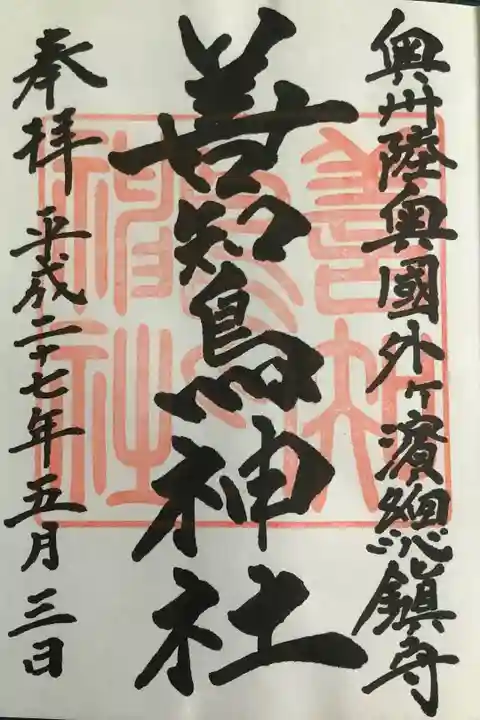 奥州陸奥國外ヶ濱總鎮守
善知鳥神社
奉拝 平成二十七年五月三日
善知鳥神社